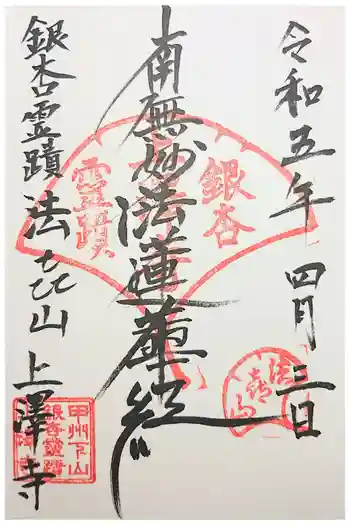 令和五年 四月 三日
南無妙法蓮華経
銀杏霊蹟 法喜山 上澤寺
銀杏
霊蹟
法喜山
甲州下山
銀杏霊蹟